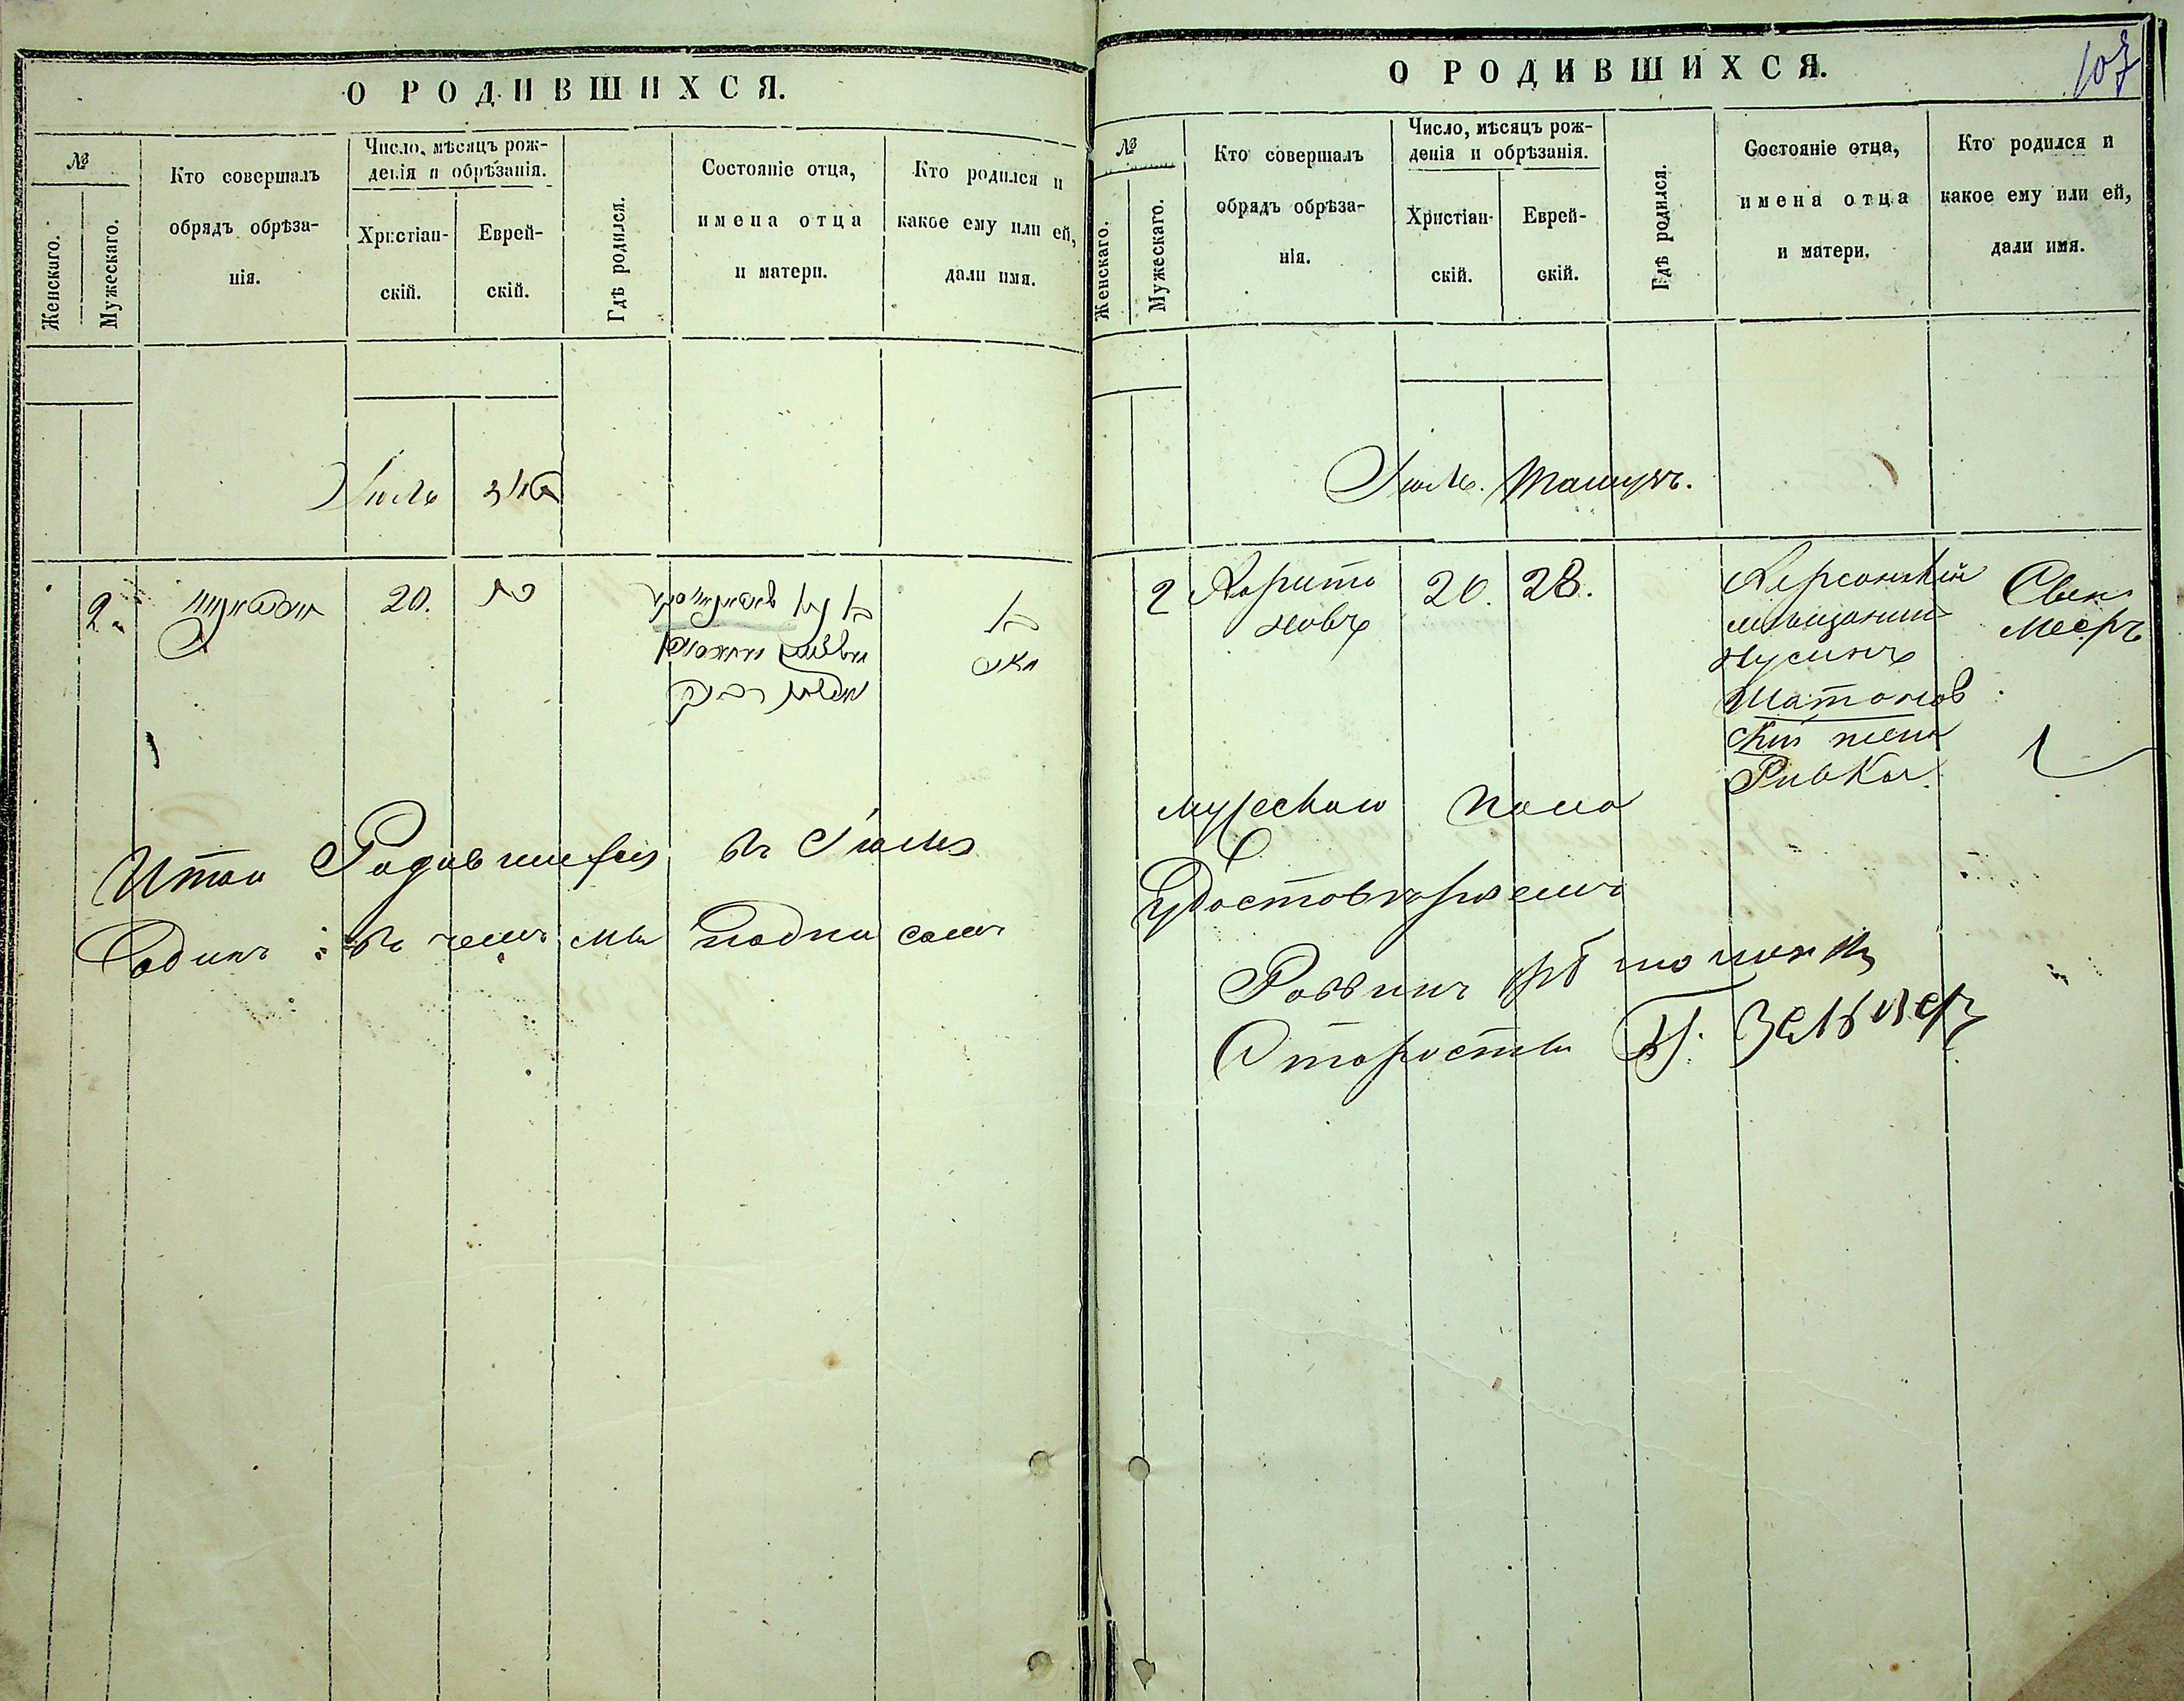 О РОДИВШИХСЯ.
№
Женскаго.
Мужескаго.
Кто совершалъ
обрядъ обрѣза-
нія.
Число, мѣсяцъ рож-
денія и обрѣзанія.
Христіан-
скій.
Еврей-
скій.
Гдѣ родился.
Состояніе отца,
имена отца
и матери.
Кто родился и
какое ему или ей,
дали имя.
Іюль
2
20.
Итого Родившихся въ Іюлѣ
Одинъ въ чемъ мы подписомъ
О РОДИВШИХСЯ.
107
№
Женскаго.
Мужескаго.
Кто совершалъ
обрядъ обрѣза-
нія.
Число, мѣсяцъ рож-
денія и обрѣзанія.
Христіан-
скій.
Еврей-
скій.
Гдѣ родился.
Состояніе отца,
имена отца
и матери.
Кто родился и
какое ему или ей,
дали имя.
Іюль. Тамузъ.
2
Харито
новъ
20.
28.
Херсонскій
мѣщанинъ
Нусинъ
Шатанов
скій жена
Ривка.
Сынъ
Мееръ
мужескаго пола
Удостовѣряемъ
Раввинъ
Старосты
Зельцеръ